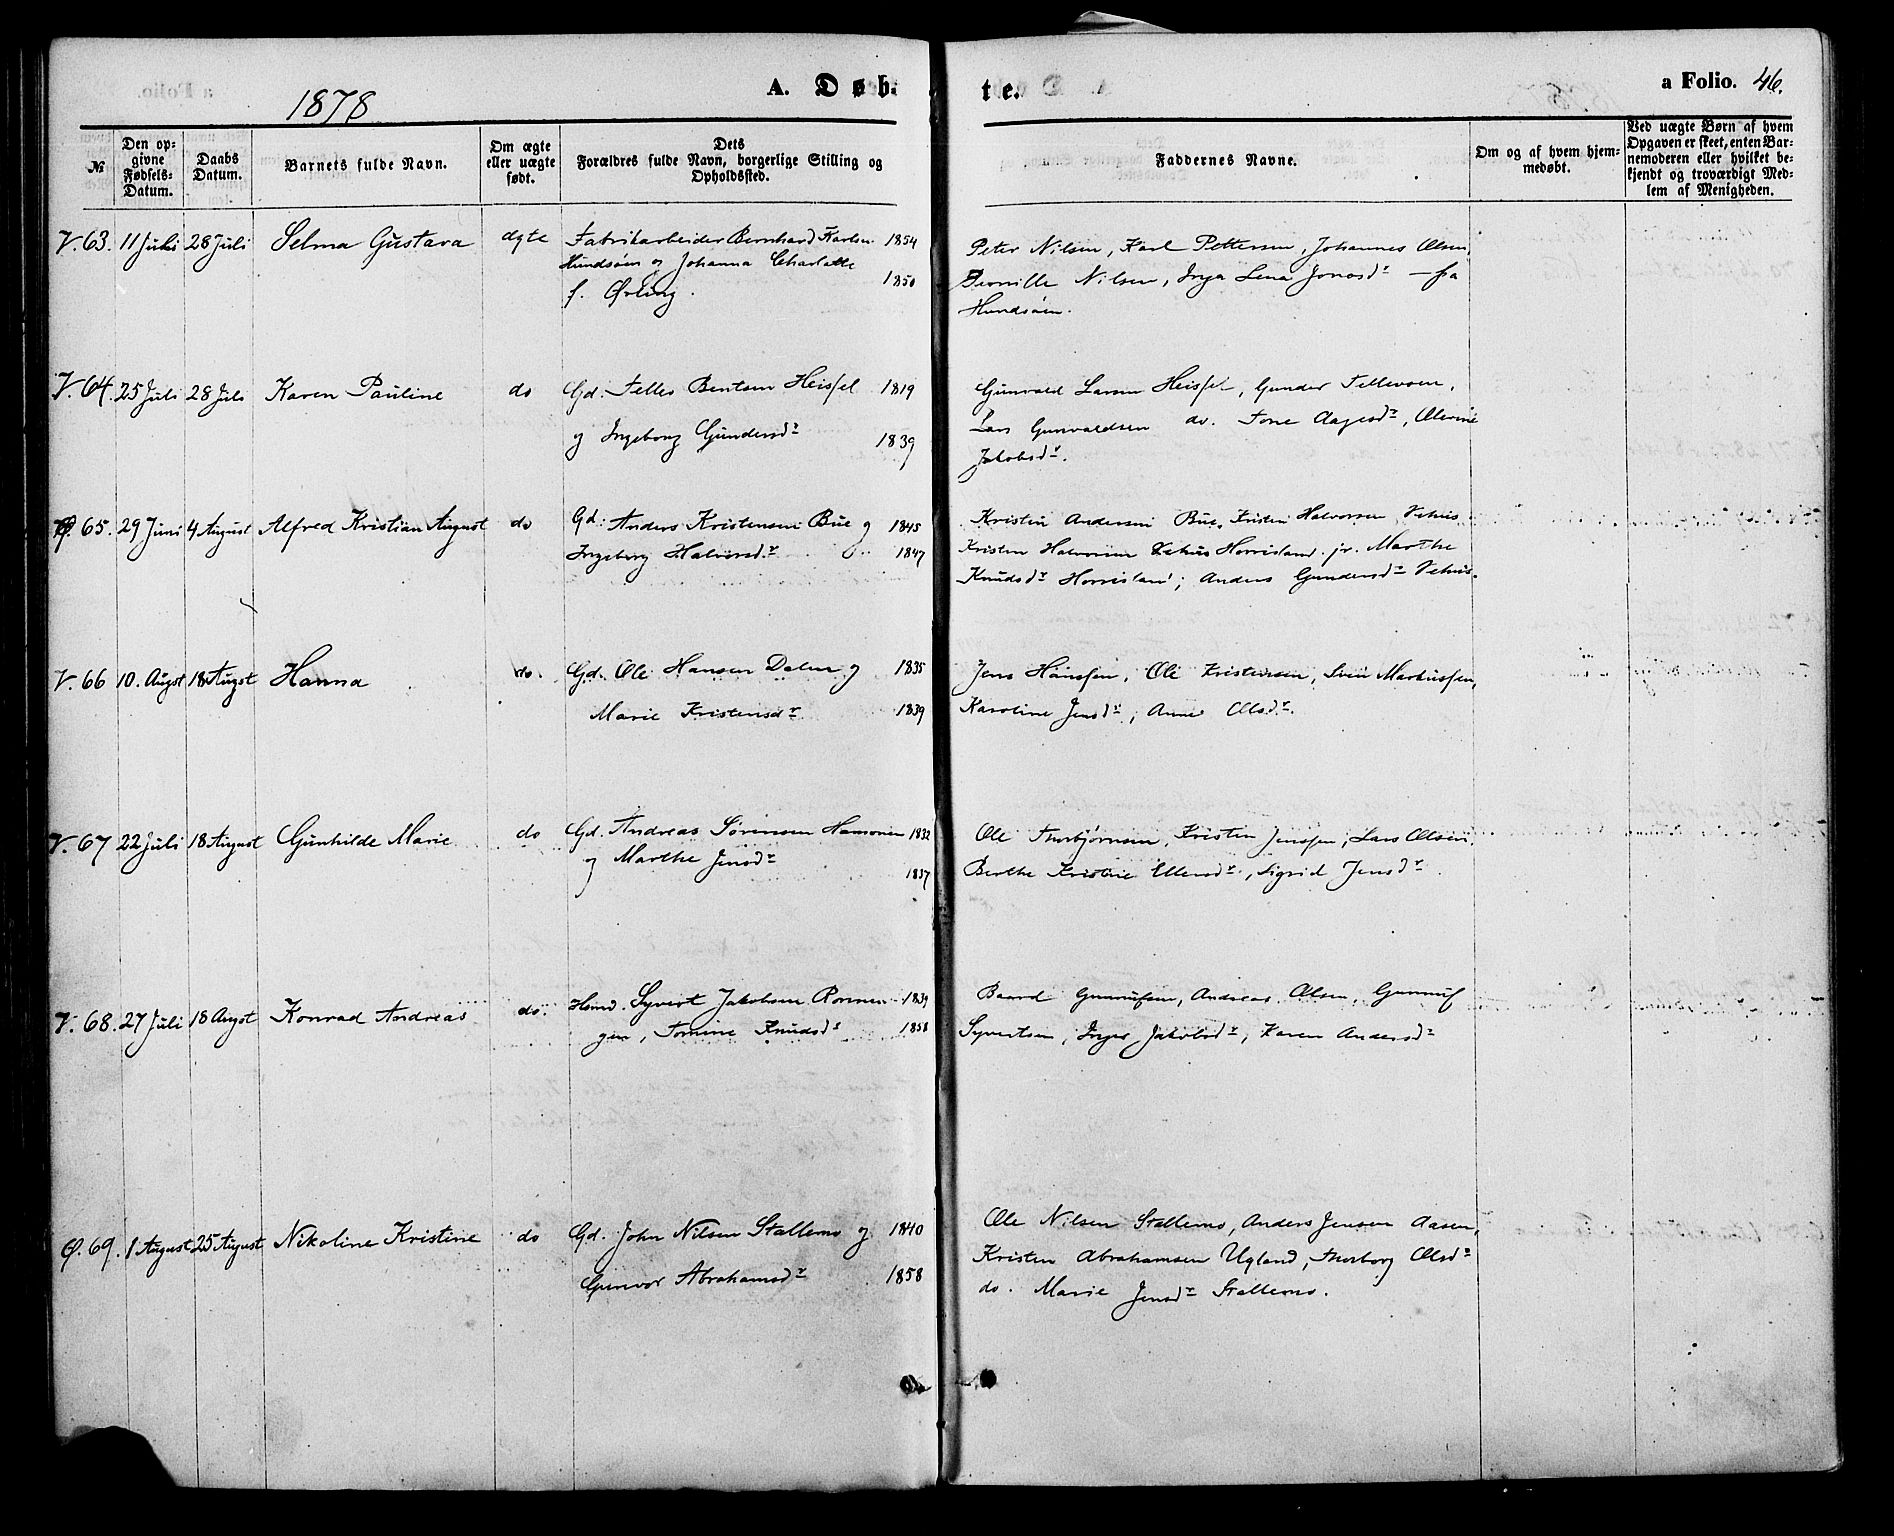 1878
A. Døbte.
a Folio. 46.
№
Den opgivne Fødsels-Datum.
Daabs Datum.
Barnets fulde Navn.
Om ægte eller uægte født.
Dets Forældres fulde Navn, borgerlige Stilling og Opholdssted.
Faddernes Navne.
Om og af hvem hjemmedøbt.
Ved uægte Børn af hvem Opgaven er skeet, enten Barnemoderen eller hvilket bekjendt og troværdigt Medlem af Menigheden.
V. 63. 11 Juli 28 Juli Selma Gustava ægte Fabrikarbeider Bernhard Karlsen 1854
Hundsøen og Johanna Charlotte 1850
f.Ørling.
Peter Nilsen, Karl Pettersen, Johannes Olsen,
Pernille Nilsen, Inga Lena Jonasdr – fra
Hundsøen.
V. 64. 25 Juli 28 Juli Karen Pauline do Gd. Tellef Bentsen Heisfel 1819
og Ingeborg Gundersdr 1839
Gunvald Larsen Heisfel, Gunder Tellevsen,
Lars Gunvaldsen do. Tone Aagesdr, Olevine
Jakobsdr.
Ø. 65. 29 Juni 4 August Alfred Kristian August do Gd. Anders Kristensen Bue og 1845
Ingeborg Halvorsdr 1847
Kristen Andersen Bue, Kristen Halvorsen Vehus
Kristen Halvorsen Vehus Horrisland. jr. Marthe
Knudsdr Horrisland; Anders Gundersdr Vehus.
V. 66 10. Augst 18 Augst Hanna do. Gd. Ole Hansen Dalen og 1835
Marie Kristensdr 1839
Jens Hanssen, Ole Kristensen, Sven Markussen,
Karoline Jensdr, Anne Olsdr.
V. 67 22 Juli 18 August Gunhilde Marie do Gd. Andreas Sørensen Hamonen 1832
og Marthe Jensdr 1837
Ole Thorbjørnsen, Kristen Jenssen, Lars Olsen,
Berthe Kristine Ellensdr, Sigrid Jensdr
V. 68. 27 Juli 18 Augst Konrad Andreas do. Hsmd. Syvert Jakobsen Ronnin 1839
gen, Tomine Knudsdr 1858
Baard Gunnufsen, Andreas Olsen, Gunnuf
Syvertsen, Inger Jakobsdr, Karen Andersdr
Ø. 69. 1 August 25 August Nikoline Kristine do Gd. John Nilsen Stallemo og 1840
Gunvor Abrahamsdr 1858
Ole Nilsen Stallemo, Anders Jensen Aasen,
Kristen Abrahamsen Ugland, Thorborg Olsdr
do. Marie Jensdr Stallemo.